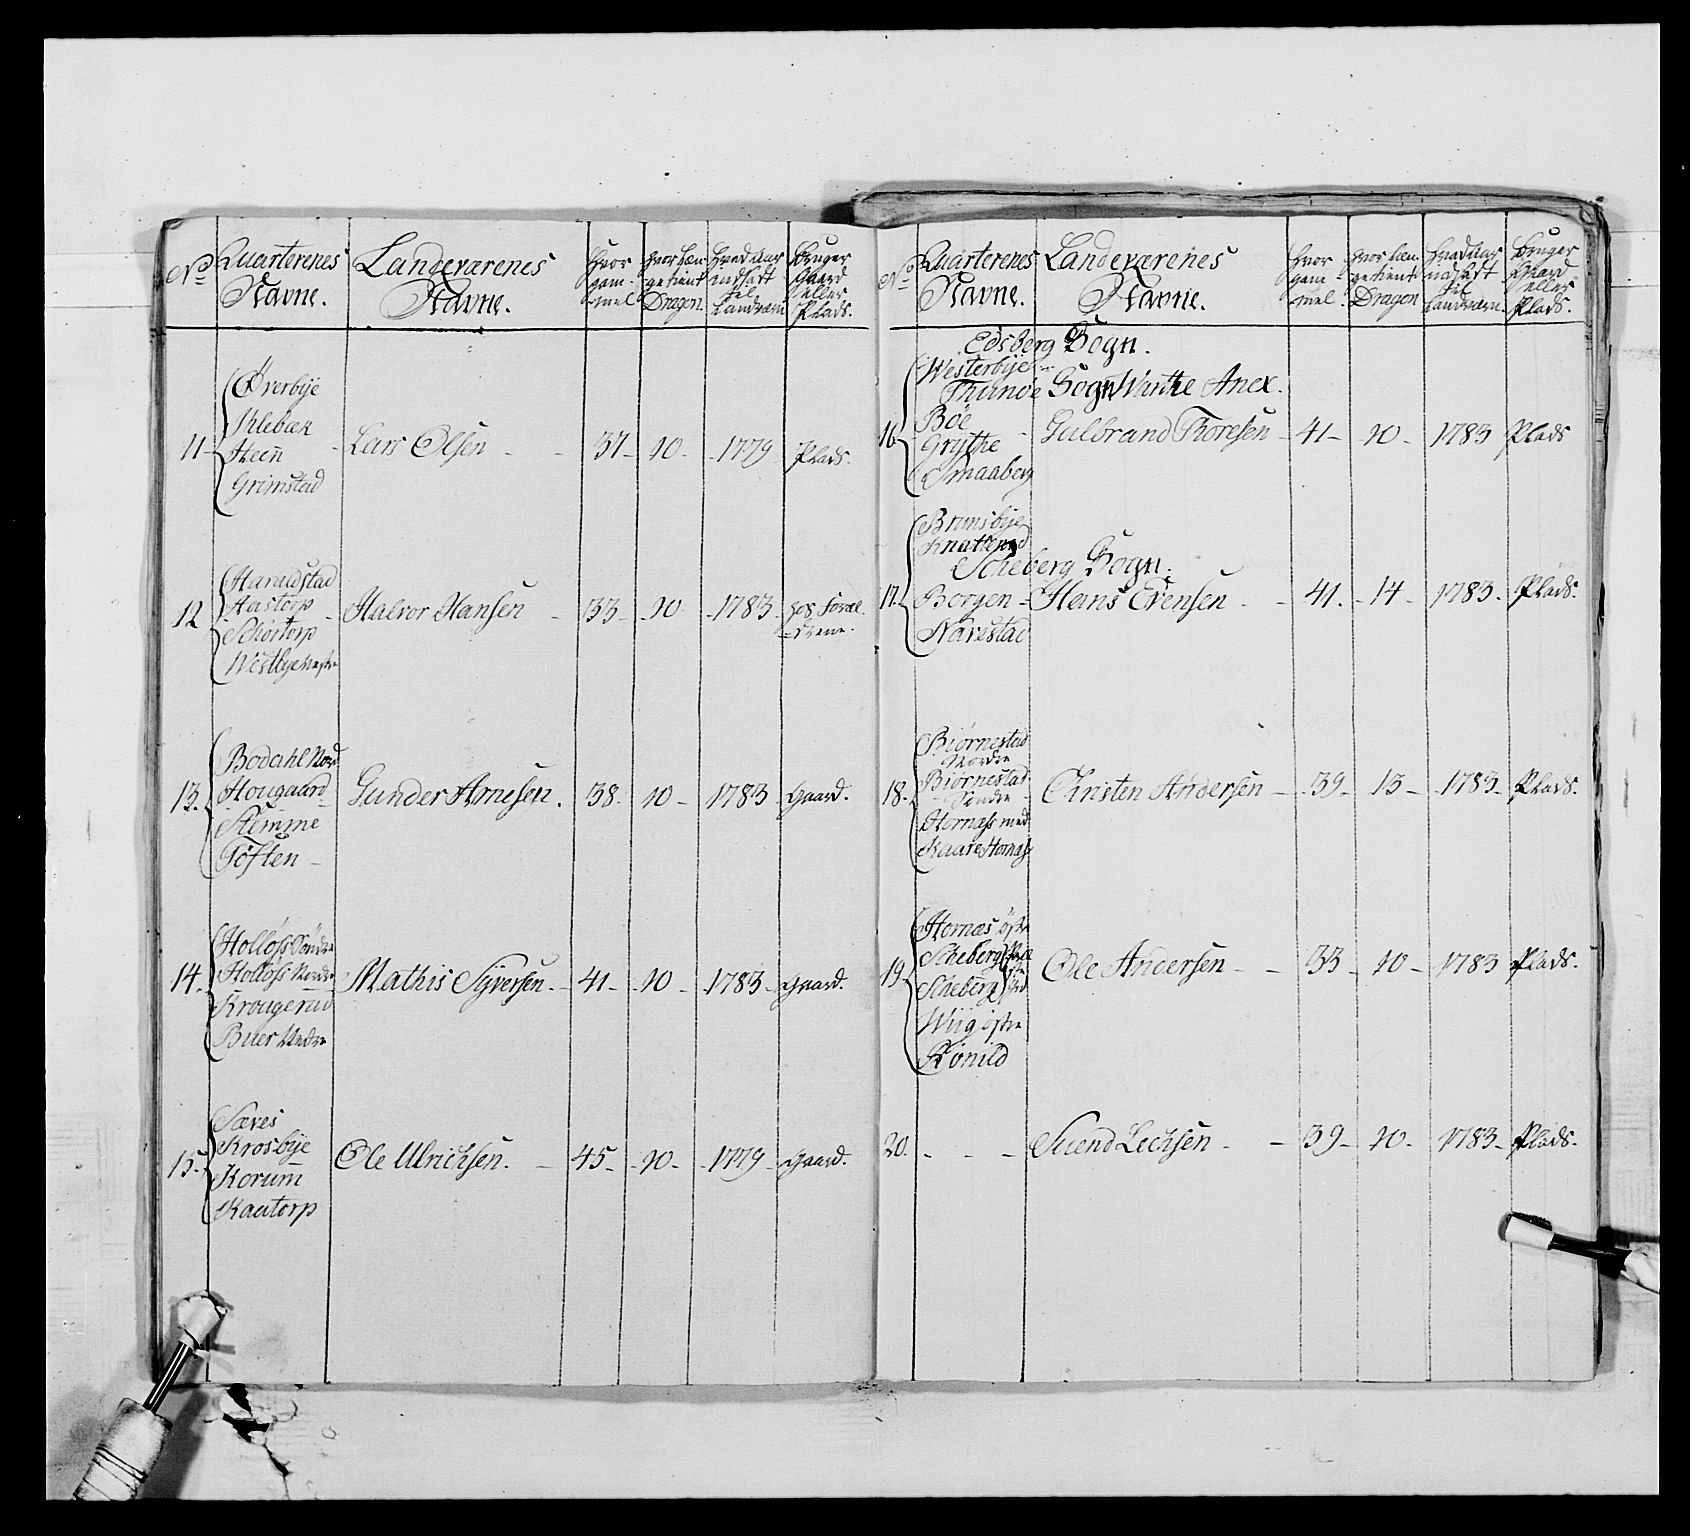 No
Quarterenes
Navne.
Landeværenes
Navne.
hvor
gam-
mel
hvor læn-
ge tient
Dragon.
hvad Aar
indsadt
til
Landværn
bruger
Gaard
eller
Plads.
11
Øverbye
Steen
Grimstad
Lars Olsen
37
10
1779
Plads.
12
Haraldstad
Hastorp
Schortorp
Westbye
Halvor Hansen
33
10
1783
hos Foræl-
drene.
13.
Bodahl Nord
Hougaard
Stemme
Töften
Gunder Arnesen.
38.
10
1783
Gaard.
14.
Holløss Söndre
Holløss Nordre
Krougerud
Buer Nedre
Mathis Syversen.
41
10
1783
Gaard.
15.
Sæves
Krosbye
Korum
Kautorp
Ole Ulrichsen.
45
10
1779
Gaard.
No
Quarterenes
Navne.
Landeværenes
Navne.
hvor
gam
mel
hvor læn-
ge tient
Dragon
hvad Aar
indsadt
til
Landværn.
bruger
Gaard
eller
Plads.
Edsberg Sogn.
Westerbye
Thunöe Sogn Anex.
16
Böe
Grythe
Smaaberg
Gulbrand Thoresen
41
10
1783
Plads
Brunsbye
Knatterud
Scheberg Sogn.
17.
Borgen
Narestad
Hans Evensen
41.
14
1783.
Plads.
18.
Biörnestad
Nordre
Biörnestad
Söndre
Hornæss med
Kaare Hornæss
Christen Andersen
39
13
1783
Plads.
19
Hornæs östre
Scheberg
Scheberg
Wiig östre
Rönild
Ole Andersen
33
10
1783
Plads.
20.
Svend Lechsen
39
10
1783
Plads.